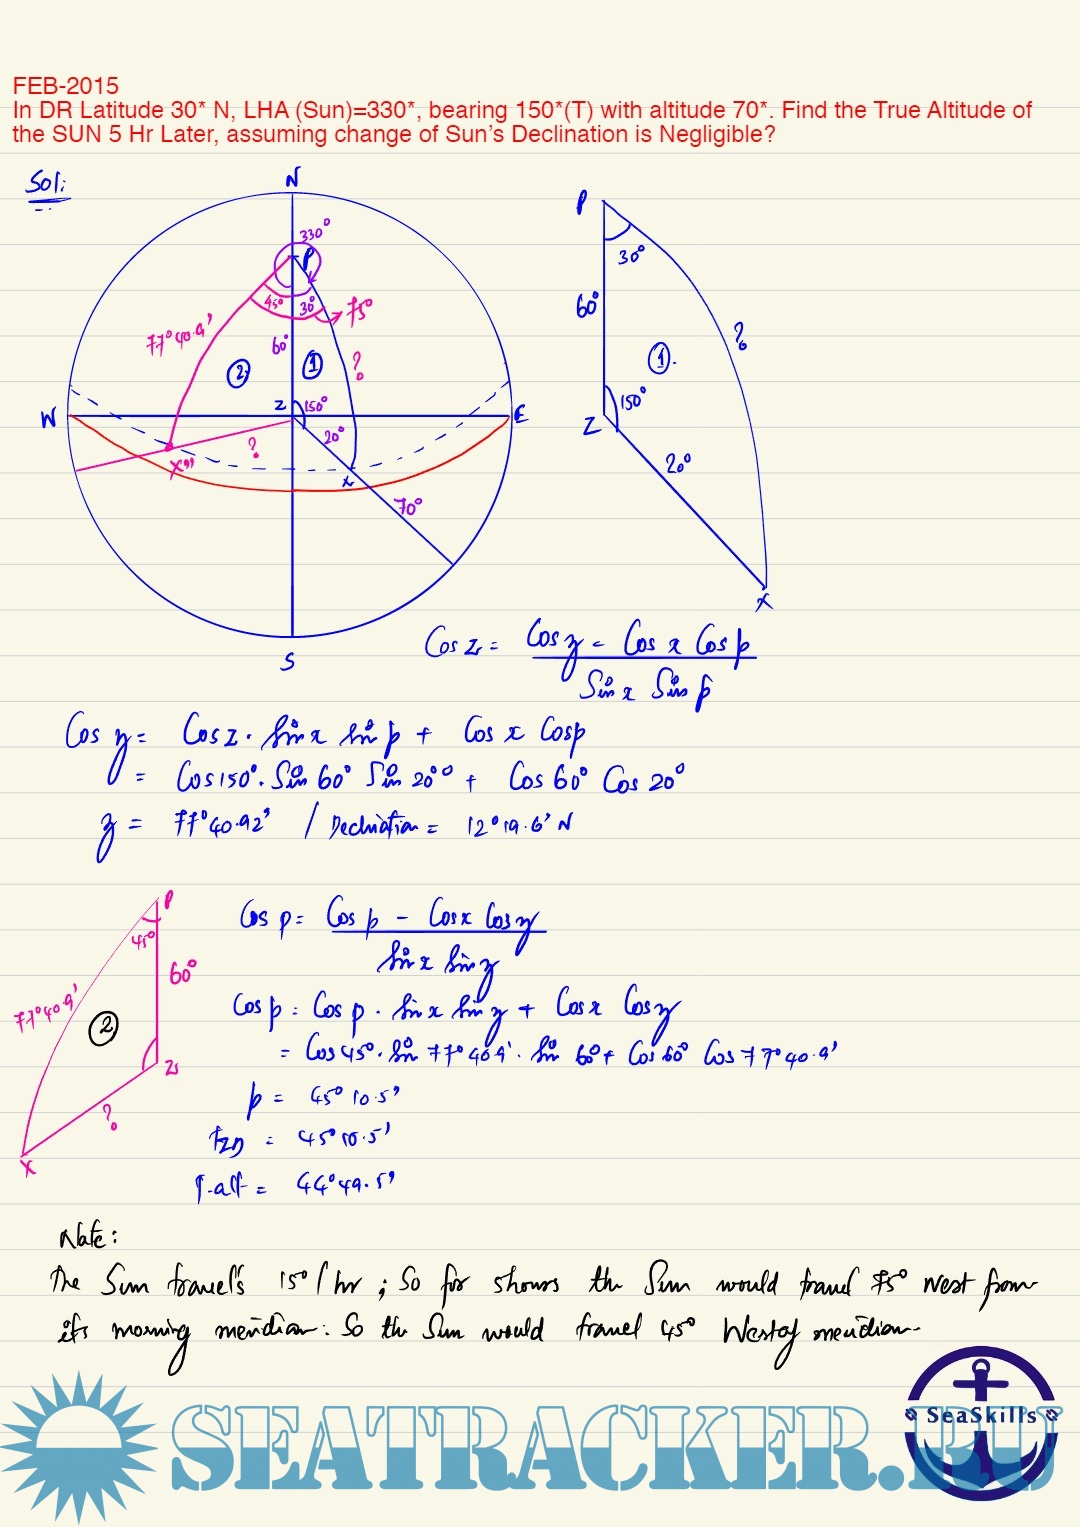 FEB-2015
In DR Latitude 30* N, LHA (Sun)=330*, bearing 150*(T) with altitude 70*. Find the True Altitude of
the SUN 5 Hr Later, assuming change of Sun's Declination is Negligible?
Sol:
N
330°
P
45° 30° 75°
77°40.9'
60°
② ① ?
W Z 150° E
? 20°
X" x
70°
S
P
30°
60°
?
①.
150°
Z
20°
X
Cos z = Cos z - Cos x Cos p / Sin x Sin p
Cos z = Cos z. Sin x Sin p + Cos x Cos p
= Cos 150°. Sin 60° Sin 20° + Cos 60° Cos 20°
z = 77°40.92' / Declination = 12°19.6' N
P
45°
60°
77°40.9'
②
Z
?
X
Cos p = Cos p - Cos x Cos z / Sin x Sin z
Cos p = Cos p . Sin x Sin z + Cos x Cos z
= Cos 45°. Sin 77°40.9'. Sin 60° + Cos 60° Cos 77°40.9'
p = 45°10.5'
TZD = 45°10.5'
T.alt = 44°49.5'
Note:
The Sun travel's 15°/hr ; So for 5hours the Sun would travel 75° West from
its morning meridian. So the Sun would travel 45° West of meridian.
SEATRACKER.RU
SeaSkills